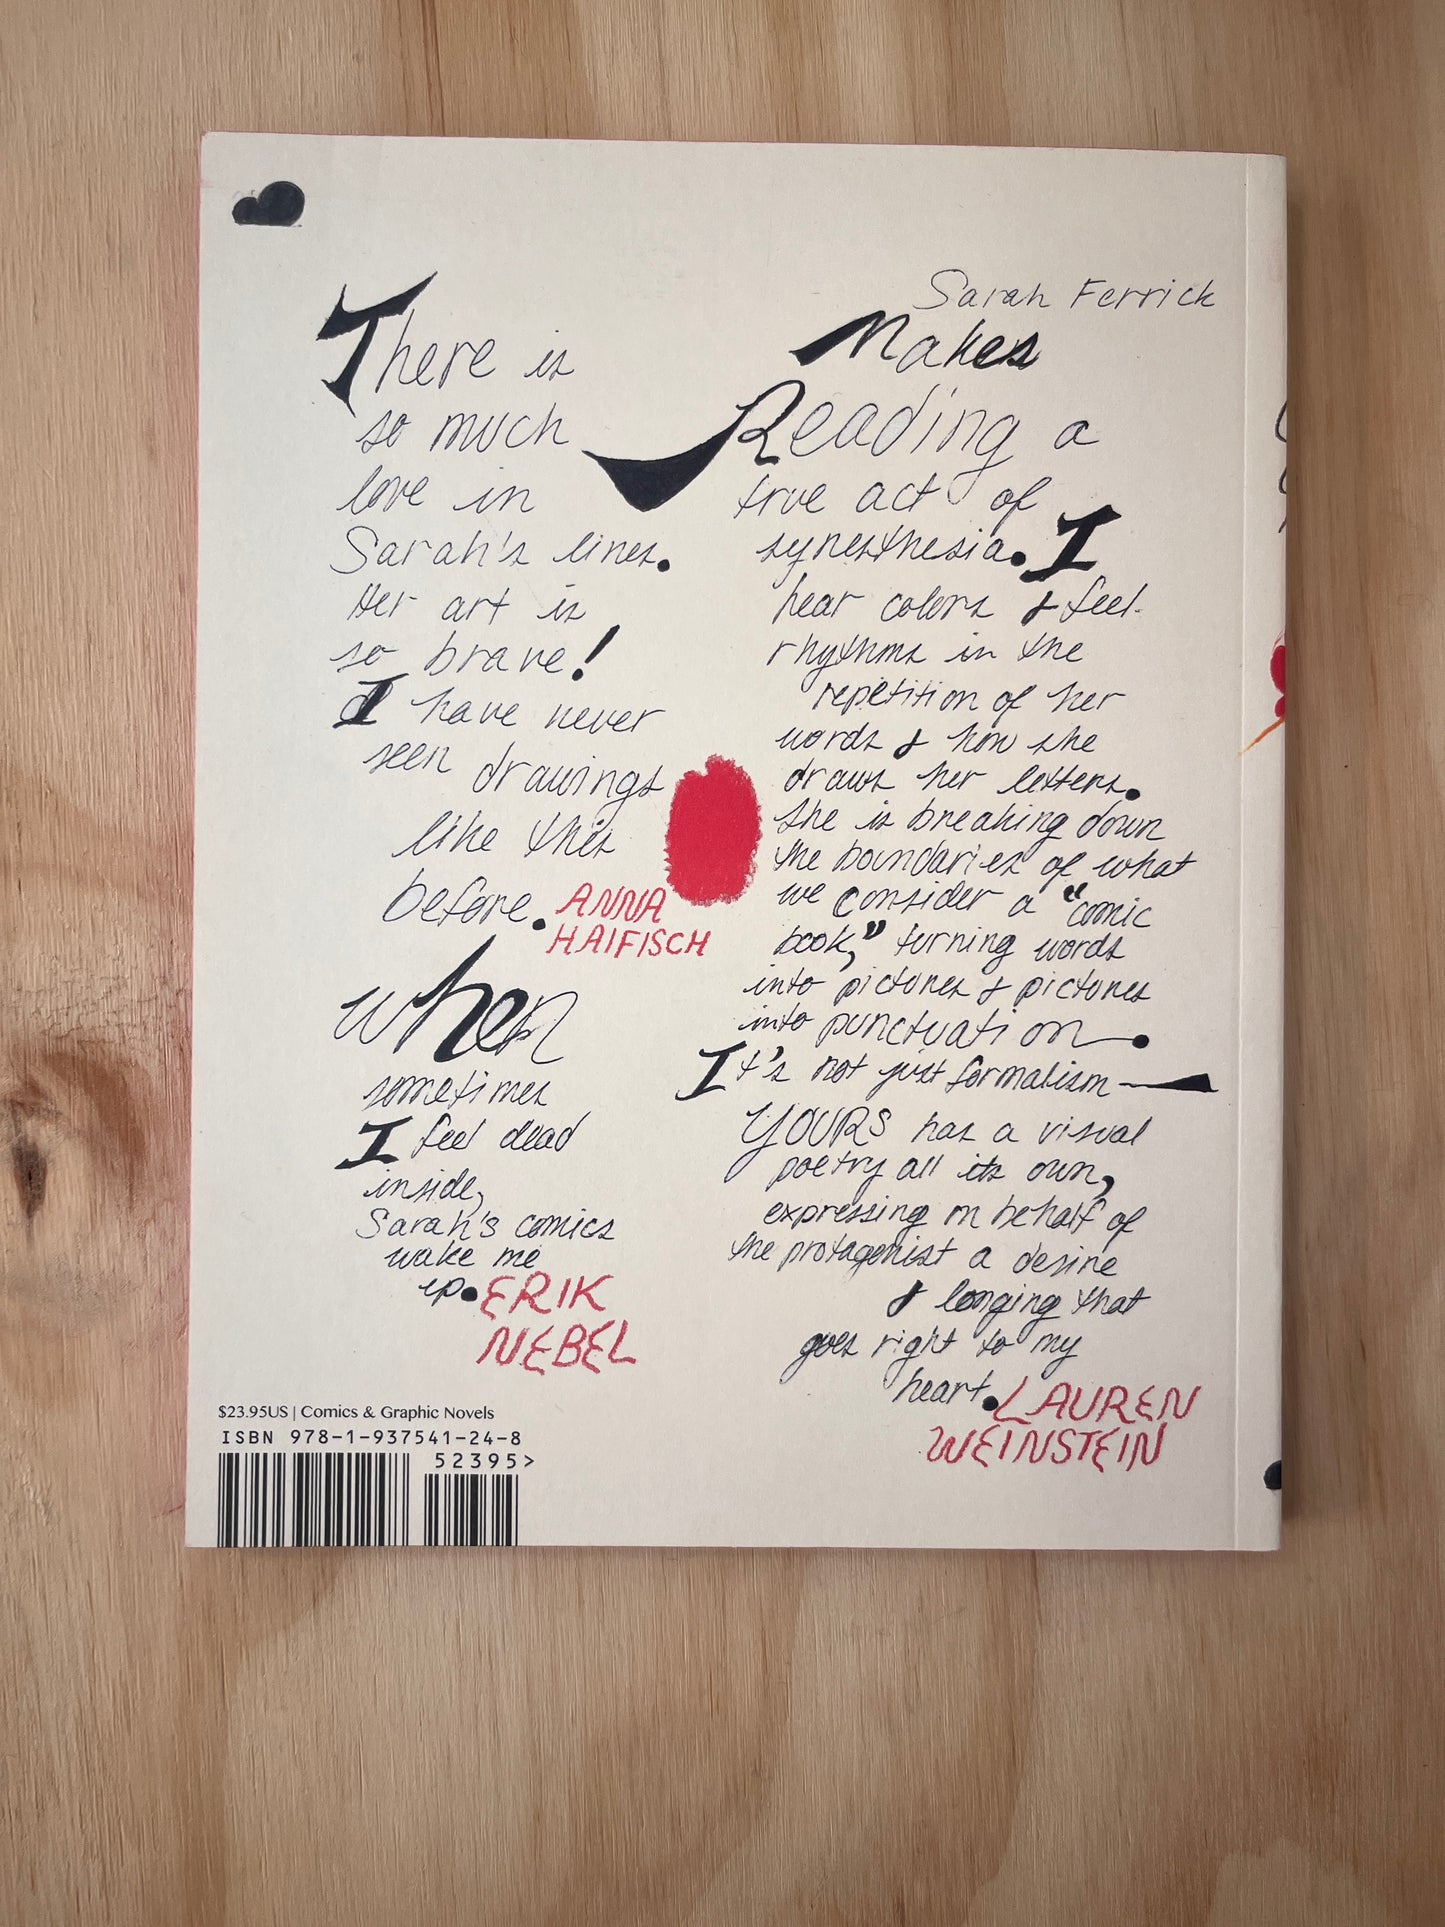 There is
so much
love in
Sarah's lines.
Her art is
so brave!
I have never
seen drawings
like this
before. ANNA
HAIFISCH
When
sometimes
I feel dead
inside,
Sarah's comics
wake me
up. ERIK
NEBEL
Sarah Ferrick
Makes
Reading a
true act of
synesthesia. I
hear colors & feel
rhythms in the
repetition of her
words & how she
draws her letters.
She is breaking down
the boundaries of what
we consider a "comic
book," turning words
into pictures & pictures
into punctuation.
It's not just formalism—
YOURS has a visual
poetry all its own,
expressing on behalf of
the protagonist a desire
& longing that
goes right to my
heart. LAUREN
WEINSTEIN
$23.95US | Comics & Graphic Novels
ISBN 978-1-937541-24-8
52395>